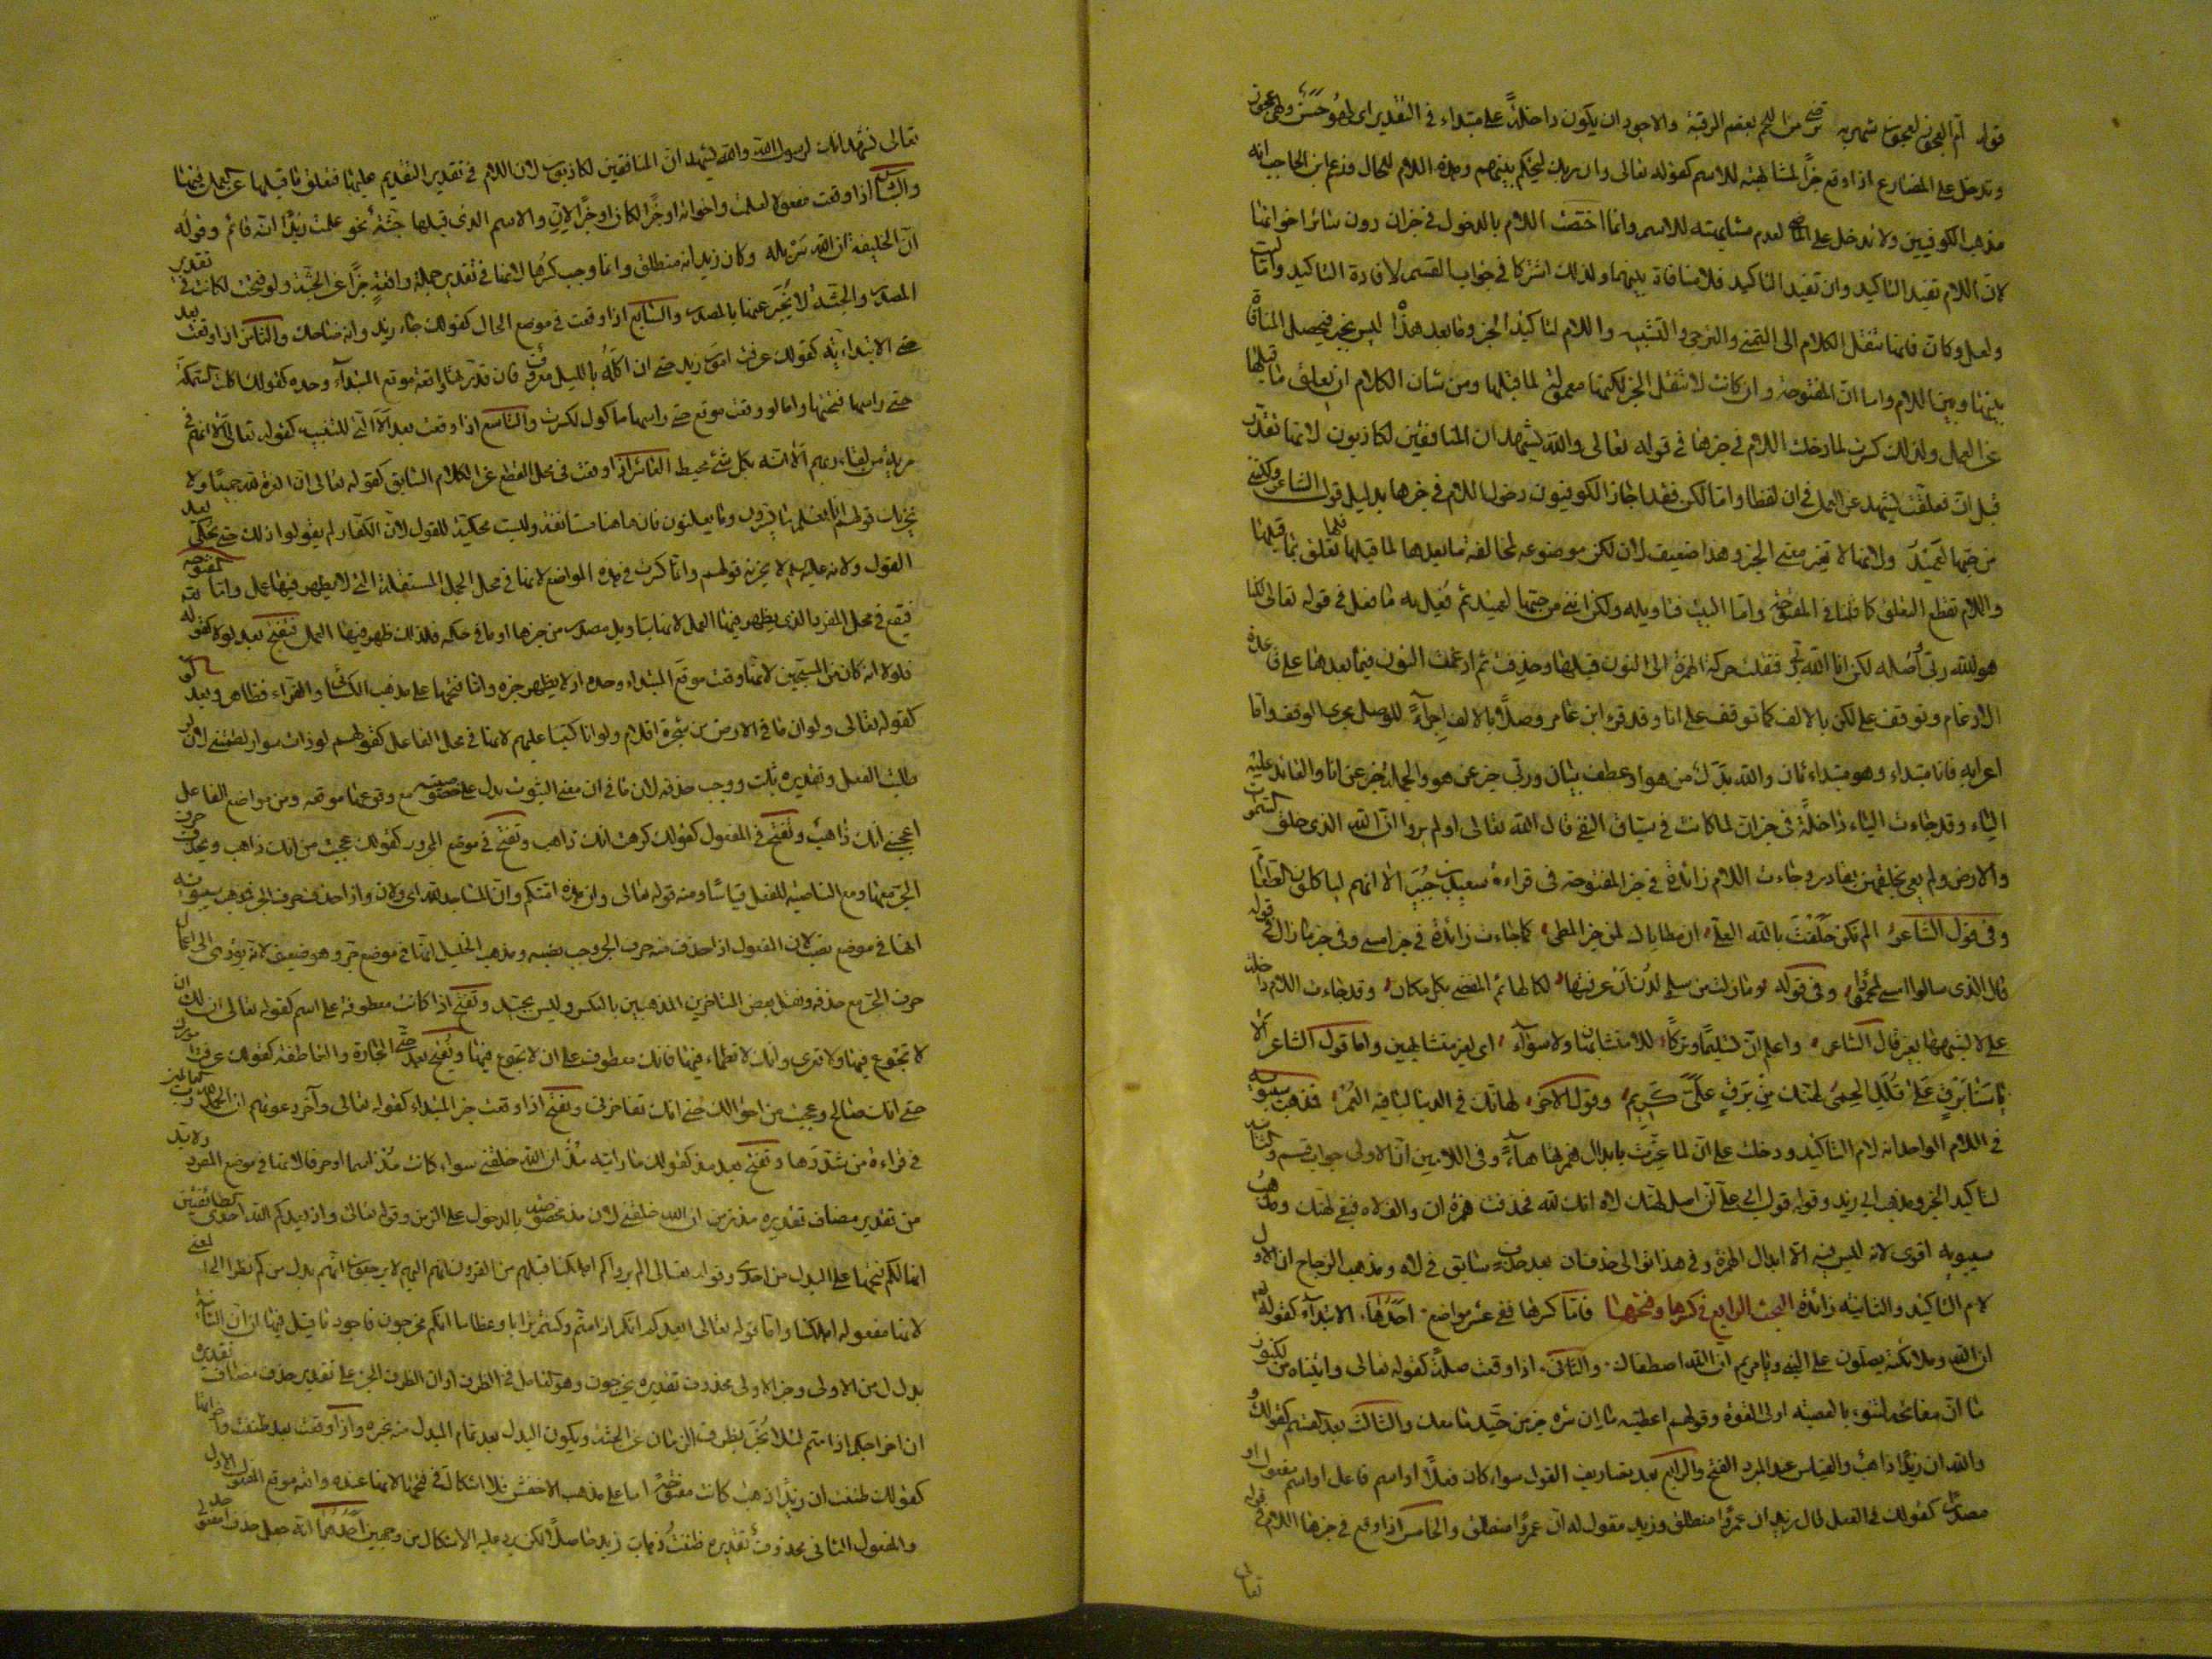 قوله ام الحليس لعجوز شهربه ترضى من اللحم بعظم الرقبة والاجود ان يكون داخلة على مبتداء في التقدير اى لهو حسن ولهى عجوز
وتدخل على المضارع اذا وقع خبرا لمشابهته للاسم كقوله تعالى وان ربك ليحكم بينهم وهذه اللام للحال وزعم ابن الحاجب انه
مذهب الكوفيين ولا تدخل على الماضي لعدم مشابهته للاسم وانما اختصت اللام بالدخول في خبر ان دون سائر اخواتها
لان اللام تفيد التاكيد وان تفيد التاكيد فلا منافاة بينهما ولذلك اشتركا في جواب القسم لافادة التاكيد واما ليت
ولعل وكان فانها تنقل الكلام الى التمني والترجي والتشبيه واللام لتاكيد الخبر وما بعد هذا ليس بخبر فيحصل المنافاة
بينها وبين اللام واما ان المفتوحة وان كانت لا تنقل الخبر لكنها معمولة لما قبلها ومن شان الكلام ان يعلق ما قبلها
عن العمل ولذلك كسرت لما دخلت اللام في خبرها في قوله تعالى والله يشهد ان المنافقين لكاذبون لانها تقدر
قبل ان فعلقت يشهد عن العمل في ان لفظا واما لكن فقد اجاز الكوفيون دخول اللام في خبرها بدليل قول الشاعر ولكنني
من حبها لعميد ولانها لا تغير معنى الخبر وهذا ضعيف لان لكن موضوعه لمخالفة ما بعدها لما قبلها فلها تعلق بما قبلها
واللام تقطع التعلق كما قلنا في المفتوحة واما البيت فتاويله ولكن انني من حبها لعميد ثم فعل به ما فعل في قوله تعالى لكنا
هو الله ربي اصله لكن انا الله ربي فنقلت حركة الهمزة الى النون قبلها وحذفت ثم ادغمت النون فيما بعدها على قاعدة
الادغام ويوقف على لكن بالالف كما توقف على انا وقد قرء ابن عامر وصلا بالالف اجراء للوصل مجرى الوقف واما
اعرابه فانا مبتداء وهو مبتداء ثان والله بدل من هو او عطف بيان وربي خبر عن هو والجملة خبر عن انا والعائد عليه
الياء وقد جاءت الباء داخلة في خبر ان لما كانت في سياق النفي قال الله تعالى اولم يروا ان الله الذى خلق السموات
والارض ولم يعي بخلقهن بقادر وجاءت اللام زائدة في خبر المفتوحة في قراءة سعيد بن جبير الا انهم لياكلون الطعام
وفي قول الشاعر الم تكن حلفت بالله العلي ان مطاياك لمن خير المطي كما جاءت زائدة في خبر امسى وفي خبر ما زال في قوله
فقال الذى سالوا امسى لمجهودا وفي قوله وما زلت من سلمى لدن ان عرفتها لكالهائم المقصى بكل مكان وقد جاءت اللام داخلة
على لا لشبهها بغير قال الشاعر واعلم ان تسليما وتركا للا متشابهان ولا سواء اى لغير متشابهين واما قول الشاعر الا
يا سنا برق على قلل الحمى لهنك من برق على كريم وقول الآخر لهانك في الدنيا لباقية العمر فمذهب سيبويه
في اللام الواحدة انه لام التاكيد ودخلت على ان لما غيرت بابدال همزتها هاء وفي اللامين ان الاولى جواب قسم والثانية
لتاكيد الخبر ومذهب ابي زيد وقوله قول ابي علي ان اصل لهنك لاه انك لله فحذفت همزة ان والف لاه فبقي لهنك ومذهب
سيبويه اقوى لانه ليس فيه الا ابدال الهمزة وفي هذا توالى حذفان بعد حذف سابق في لاه ومذهب الزجاج ان الاولى
لام التاكيد والثانية زائدة البحث الرابع في كسرها وفتحها فاما كسرها ففي عشر مواضع احدها الابتداء كقوله تعالى
ان الله وملائكته يصلون على النبي ويا مريم ان الله اصطفاك والثاني اذا وقعت صلة كقوله تعالى واتيناه من الكنوز
ما ان مفاتحه لتنوء بالعصبة اولى القوة وقولهم اعطيته ما ان شره خير من جيد ما معك والثالث بعد القسم كقولك
والله ان زيدا ذاهب والقياس عند المبرد الفتح والرابع بعد تصاريف القول سواء كان فعلا او اسم فاعل او اسم مفعول او
مصدرا كقولك في الفعل قال زيد ان عمرًا منطلق وزيد مقول له ان عمرًا منطلق والخامس اذا وقع في خبرها اللام في قوله
تعالى
تعالى نشهد انك لرسول الله والله يشهد ان المنافقين لكاذبون لان اللام في تقدير التقديم عليها فعلق ما قبلها عن العمل فيها
والسادس اذا وقعت مفعولا لعلمت واخواته او خبرًا لكان او خبرًا لان والاسم الذى قبلها جثة نحو علمت زيدًا انه قائم وقوله
ان الخليفة ان الله سربله وكان زيد انه منطلق وانما وجب كسرها لانها في تقدير جملة واقعة خبرًا عن الجثة ولو فتحت لكانت في تقدير
المصدر والجثة لا يخبر عنها بالمصدر والسابع اذا وقعت في موضع الحال كقولك جاء زيد وانه ضاحك والثامن اذا وقعت بعد
حتى الابتدائية كقولك عرفت امور زيد حتى ان اكله بالليل معروف فان قدرتها واقعة موقع المبتدأ وحده كقولك اكلت السمكة
حتى راسها فتحتها واما لو وقعت موقع حتى راسها ماكول لكسرت والتاسع اذا وقعت بعد الا التي للتنبيه كقوله تعالى الا انهم في
مرية من لقاء ربهم الا انه بكل شئ محيط العاشر اذا وقعت في محل القطع عن الكلام السابق كقوله تعالى ان العزة لله جميعًا ولا
يحزنك قولهم انا نعلم ما يسرون وما يعلنون فان هاهنا مستانفة وليست محكية للقول لان الكفار لم يقولوا ذلك حتى يحكى بعد
القول ولانه عليه السلم لا يحزنه قولهم وانما كسرت في هذه المواضع لانها في محل الجمل المستقلة التي لا يظهر فيها عمل واما المفتوحة
فتقع في محل المفرد الذى يظهر فيها العمل لانها بتاويل مصدر من خبرها او ما في حكمه فلذلك ظهر فيها العمل فتفتح بعد لولا كقوله تعالى
فلولا انه كان من المسبحين لانها وقعت موقع المبتداء وحده اذ لا يظهر خبره واما فتحها على مذهب الكسائي والفراء فظاهر وبعد لو
كقوله تعالى ولو ان ما في الارض من شجرة اقلام ولو انا كتبنا عليهم لانها في محل الفاعل كقولهم لو ذات سوار لطمتني لان لو
طالب الفعل وتقديره ثبت ووجب حذفه لان ما في ان معنى الثبوت يدل على خصوصيته مع وقوعها موقعه ومن مواضع الفاعل
اعجبني انك ذاهب وتفتح في المفعول كقولك كرهت انك ذاهب وتفتح في موضع المجرور كقولك عجبت من انك ذاهب ويحذف حرف
الجر معها ومع الناصبة للفعل قياسًا ومنه قوله تعالى وان هذه امتكم وان المساجد لله اى ولان واذا حذف حرف الجر فمذهب سيبويه
انها في موضع نصب لان المفعول اذا حذف منه حرف الجر وجب نصبه ومذهب الخليل انها في موضع جر وهو ضعيف لانه يؤدى الى اعمال
حرف الجر مع حذفه ونقل بعض المتاخرين المذهبين بالعكس وليس بجيد وتفتح اذا كانت معطوفة على اسم كقوله تعالى ان لك ان
لا تجوع فيها ولا تعرى وانك لا تظماء فيها فانك معطوف على ان لا تجوع فيها وتفتح بعد حتى الجارة والعاطفة كقولك عرفت امورك
حتى انك صالح وعجبت من احوالك حتى انك تفاخرني وتفتح اذا وقعت خبر المبتداء كقوله تعالى وآخر دعويهم ان الحمد لله رب العالمين
في قراءة من شددها وتفتح بعد مذ كقولك ما رايته مذ ان الله خلقني سواء كانت مذ اسما او حرفا لانها في موضع المفرد ولابد
من تقدير مضاف تقديره مذ زمن ان الله خلقني لان مذ مختصة بالدخول على الزمن وقوله تعالى واذ يعدكم الله احدى الطائفتين
انها لكم فتحها على البدل من احدى وقوله تعالى الم يروا كم اهلكنا قبلهم من القرون انهم اليهم لا يرجعون انهم بدل من كم نظرا الى المعنى
لانها مفعوله اهلكنا واما قوله تعالى ايعدكم انكم اذا متم وكنتم ترابا وعظاما انكم مخرجون فاجود ما قيل فيها ان ان الثانية
بدل من الاولى وخبر الاولى محذوف تقديره يخرجون وهو العامل في الظرف او ان الظرف الخبر على تقدير حذف مضاف تقديره
ان اخراجكم اذا متم لئلا يخبر بظرف الزمان عن الجثة ويكون البدل بعد تمام المبدل منه بخبره واذا وقعت بعد ظننت واخواتها
كقولك ظننت ان زيدًا ذهب كانت مفتوحة اما على مذهب الاخفش فلا اشكال في فتحها لانها عنده واقعة موقع المفعول الاول
والمفعول الثاني محذوف تقديره ظننت ذهاب زيد حاصلا لكن يرد عليه الاشكال من وجهين احدهما انه جعل حذف احد مفعولي